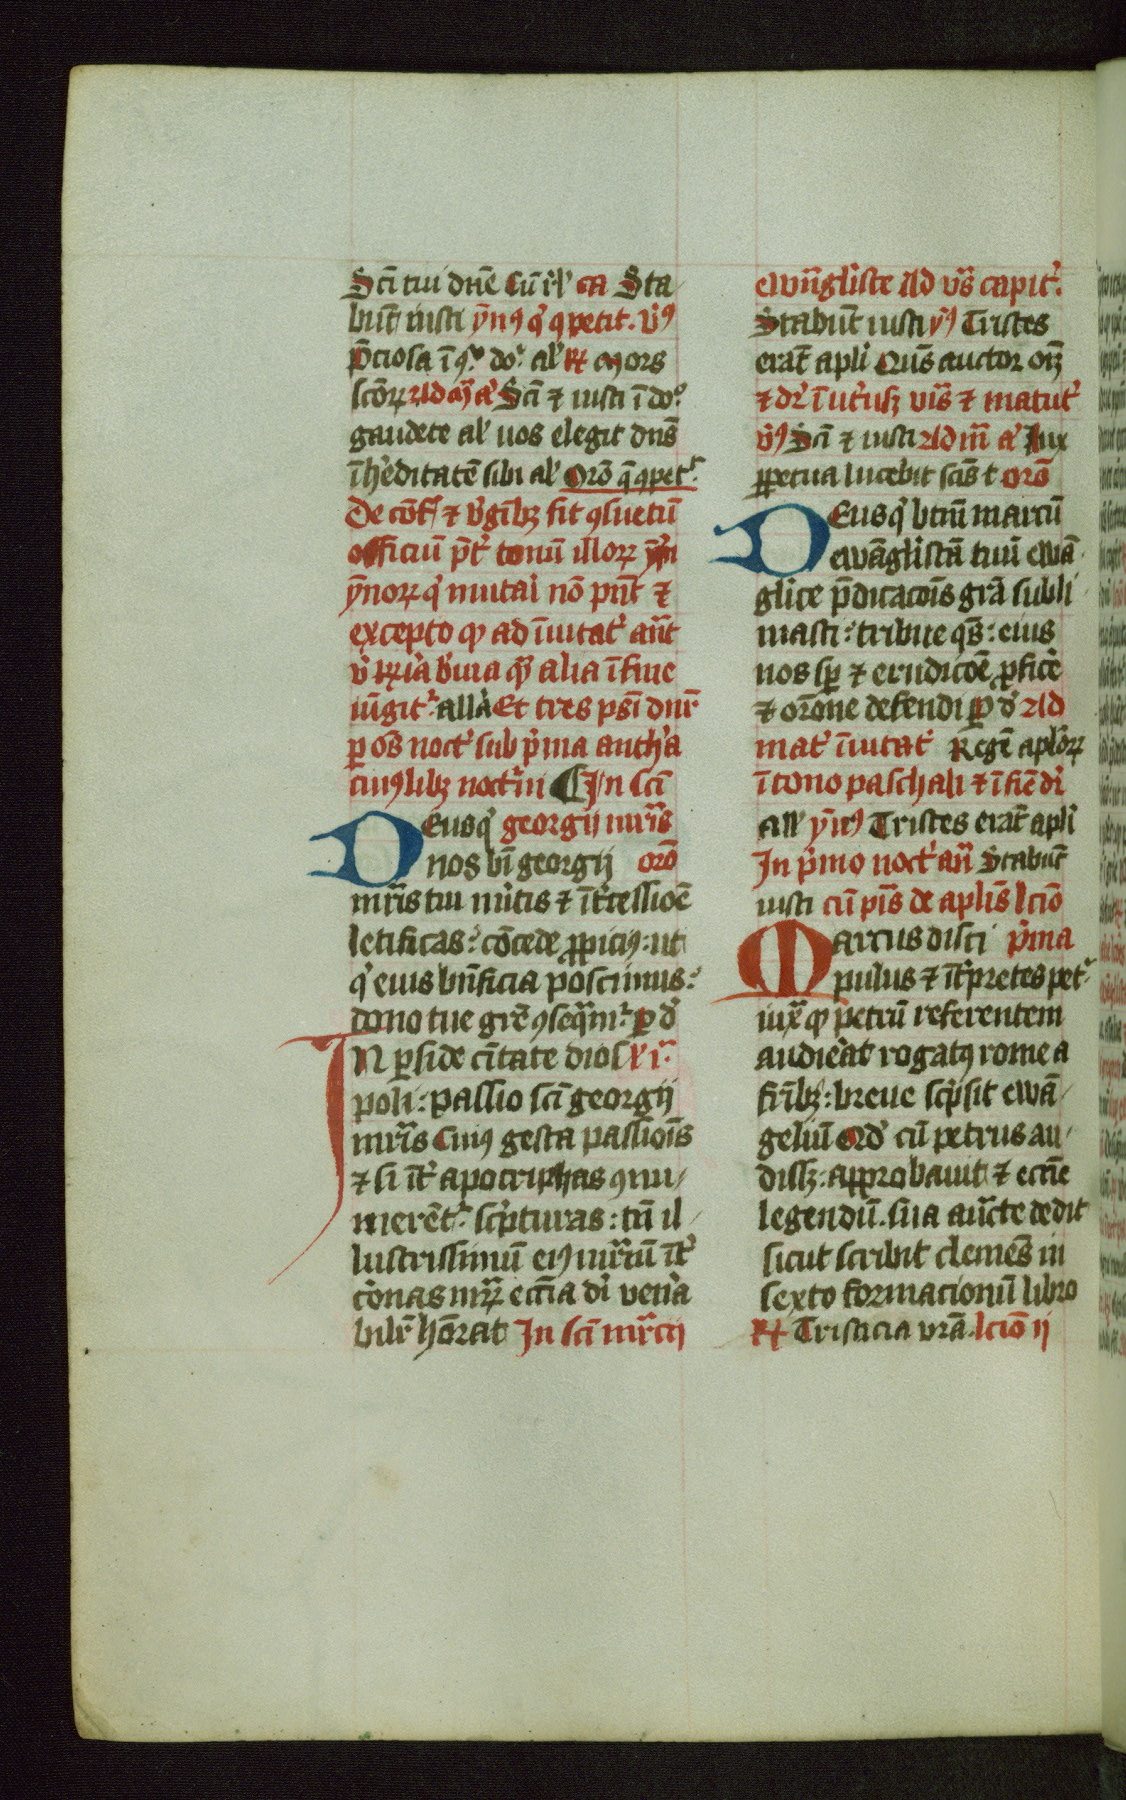 Sc̄i tui dn̄e Cū il' ca Sta
būt iusti ȳn⁹ q' ꝯpetit. v⁹
p̄ciosa ī ꝯ° do° al' ℟ Mors
sc̄oꝝ Ad m̄ a' Sc̄i ⁊ iusti ī do°
gaudete al' uos elegit dn̄s
ī h'editatē sibi al' Orō q̄ ꝯpet'
De cōf' ⁊ v'gībꝫ fit ꝯsuetū
officiū p̄t' tonū illoꝝ
ȳnoꝝ q' mutai nō pn̄t ⁊
excepto ꝙ ad īuitat' an̄t
v' bīna ꝙ alia ī fine
iūgit' alla Et tres ps̄i dn̄r
ꝑ oēs noct' sub p'ma auth'a
cui⁹libꝫ noct'ni In sc̄i
Deus q' georgij mr̄is
nos bt̄i georgij orō
mr̄is tui mītis ⁊ īt'cessioē
letificas: cōcede ꝓpici⁹: ut
q' eius bn̄ficia poscimus:
dono tue gr̄e ꝯseq̄m' ꝑ d'
IN ꝑside ciuitate dios
poli: passio sc̄i georgij
mr̄is Cui⁹ gesta passiōis
⁊ si īt' apocriphas ꝯnu
merēt' sc̄pturas: tn̄ il
lustrissimū ei⁹ mr̄iū īt'
cōnas mr̄ꝝ ecc̄ia di ven'a
bilr̄ hōrat In sc̄i mr̄ci
ewn̄gliste Ad vs̄ capit'.
Stabūt iusti v⁹ Tristes
erāt apli Orō s auctor oīꝫ
⁊ dr̄ ī ut'usqꝫ vīs ⁊ matut'
v⁹ Sc̄i ⁊ iusti Ad m̄ a' Lux
ꝑpetua lucebit sc̄is t orō
Deus q' btm̄ marcū
ewāglistā tuū ewā
glice p̄dicacōis gr̄a subli
masti: tribue qs̄: eius
nos sꝑ ⁊ erudicōe ꝓfic'e
⁊ or̄one defendi ꝑ d' Ad
mat' īuitat' Regē aploꝝ
ī tono paschali ⁊ ī fie dr̄
all' ȳn⁹ Tristes erāt apli
In p'mo noct' an̄ Stabūt
iusti cū ps̄is de aplis lc̄io
Marcus disci p'ma
pulus ⁊ īt'pretes pet'
iux̄ ꝙ petrū referentem
audierat rogat⁹ rome a
fr̄ibꝫ: breue sc̄psit ewā
geliū Qd' cū petrus au
dissꝫ: approbauit ⁊ ecc̄ie
legendū sua auct̄e dedit
sicut scribit clemēs in
sexto formacionū libro
℟ Tristicia vr̄a lc̄io ij